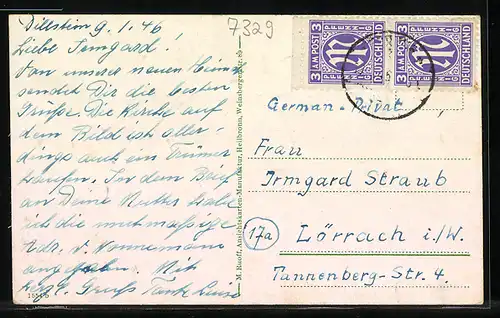 Dillstein 9.1.46
Liebe Irmgard!
Von unserer neuen Heimat
sendet Dir die besten
Grüße. Die Kirche auf
dem Bild ist aller-
dings auch ein Trümmer
haufen. In dem Brief
an Deine Mutter habe
ich die mutmaßige
Adr. v. Nonnemann
angegeben. Mit
herzl. Gruß Tante Luise
7329
M. Ruoff, Ansichtskarten-Manufaktur, Heilbronn, Weinsbergerstr.
3 AM POST 3
PFENNIG
DEUTSCHLAND
3 AM POST 3
PFENNIG
DEUTSCHLAND
German-Privat
Frau
Irmgard Straub
17a
Lörrach i./W.
Tannenberg-Str. 4.